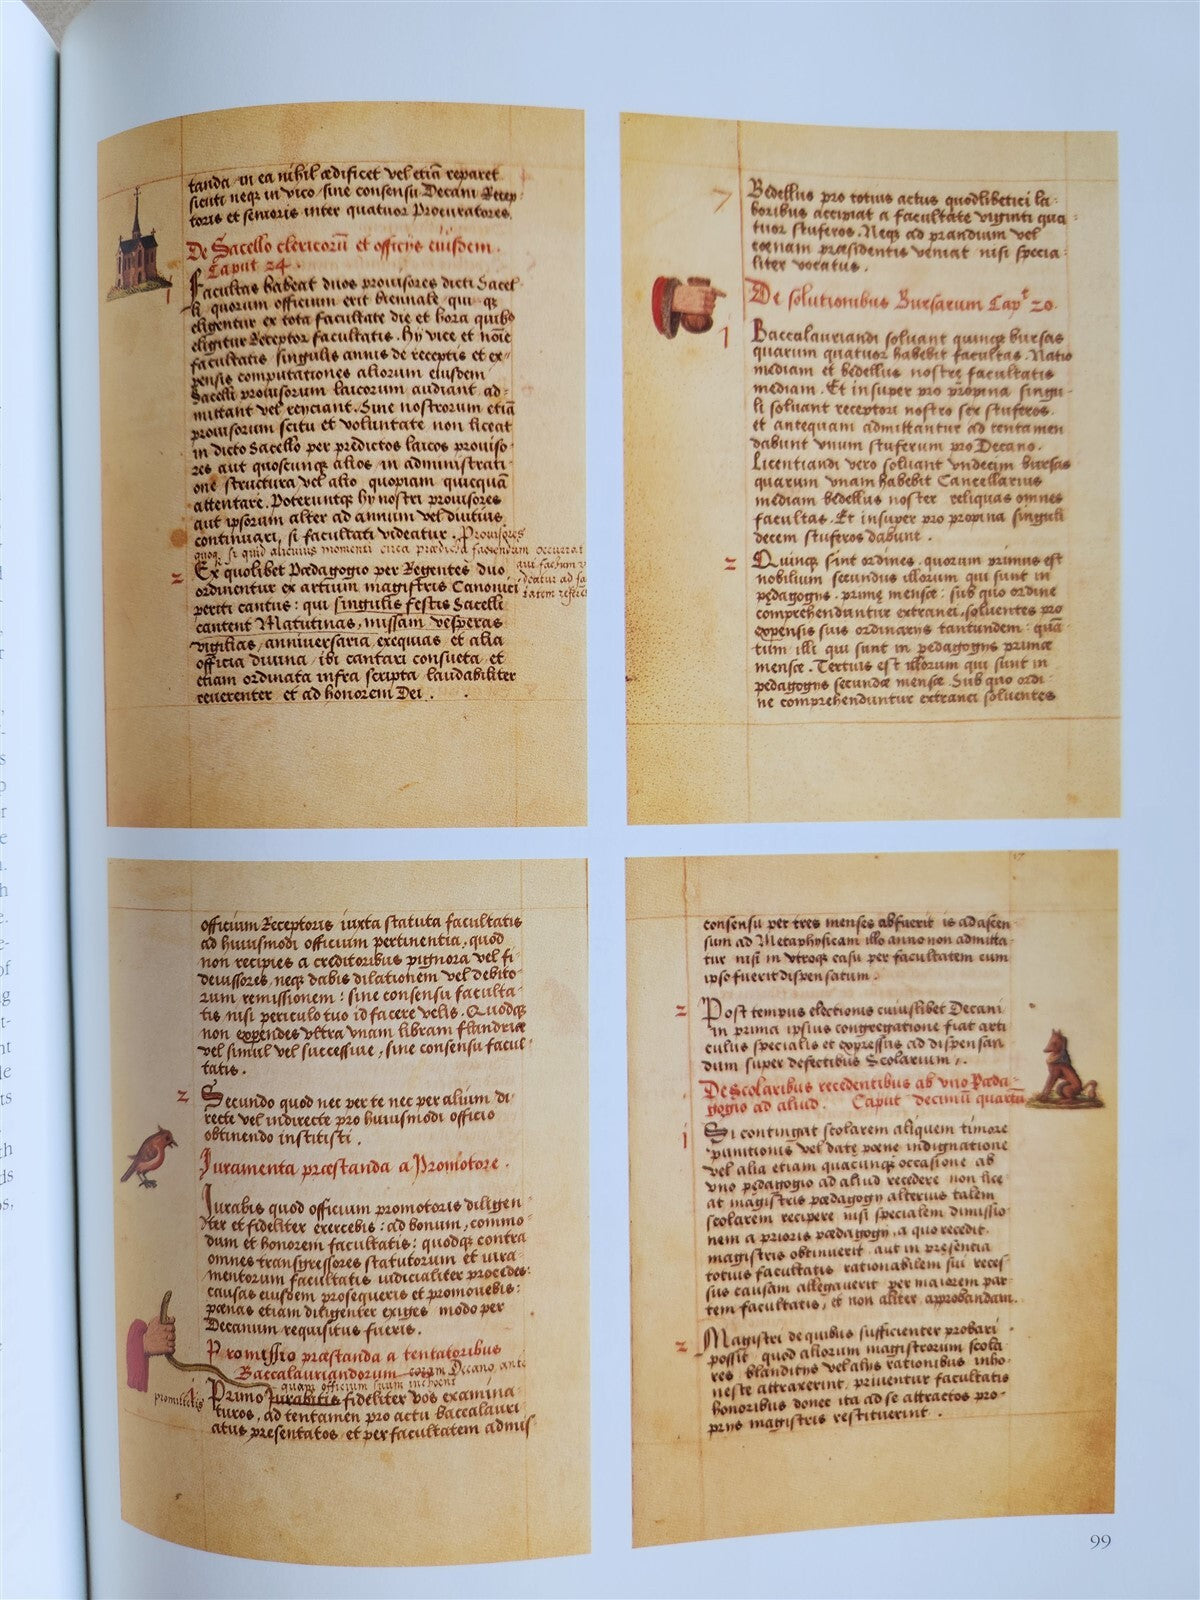 tanda in ea nihil ædificet vel etiā reparet
sicuti neqꝫ in vico sine consensu Decani Recep-
toris et senioris inter quatuor Procuratores.
De Sacello clericorū et officijs eiusdem.
Caput 24.
1 Facultas habeat duos prouisores dicti Sacel-
li quorum officium erit biennale qui
eligentur ex tota facultate die et hora quibꝰ
eligitur Receptor facultatis. Hij vice et noīe
facultatis singulis annis de receptis et ex-
pensis computationes aliorum eiusdem
Sacelli prouisorum laicorum audiant ad-
mittant vel reijciant. Sine nostrorum etiā
prouisorum scitu et voluntate non liceat
in dicto Sacello per prędictos laicos prouiso-
res aut quoscunqꝫ alios in administrati-
one structura vel alio quopiam quicquā
attentare. Poteruntqꝫ hij nostri prouisores
aut ipsorum alter ad annum vel diutius
continuari, si facultati videatur. Prouisores
quoqꝫ si quid alicuius momenti circa prædicta faciendum occurrat
2 Ex quolibet Pædagogio per Regentes duo
ordinentur ex artium magistris Canonici
periti cantus: qui singulis festis Sacelli
cantent Matutinas, missam vesperas
vigilias, anniuersaria exequias et alia
officia diuina, ibi cantari consueta et
etiam ordinata infra scripta laudabiliter
reuerenter et ad honorem Dei.
7 Bedellus pro totius actus quodlibetici la-
boribus accipiat a facultate viginti qua-
tuor stuferos. Neqꝫ ad prandium vel
cœnam præsidentis veniat nisi specia-
liter vocatus.
De solutionibus Bursarum Capᵗ 20.
1 Baccalauriandi soluant quinqꝫ bursas
quarum quatuor habebit facultas. Natio
mediam et bedellus nostrę facultatis
mediam. Et insuper pro propina singu-
li soluant receptori nostro sex stuferos.
et antequam admittantur ad tentamen
dabunt vnum stuferum pro Decano.
Licentiandi vero soluant vndecim bursas
quarum vnam habebit Cancellarius
mediam bedellus noster reliquas omnes
facultas. Et insuper pro propina singuli
decem stuferos dabunt.
2 Quinqꝫ sint ordines. quorum primus est
nobilium secundus illorum qui sunt in
pędagogijs. primę mensæ: sub quo ordine
comprehendantur extranei, soluentes pro
expensis suis ordinarijs tantundem quā
tum illi qui sunt in pedagogijs primæ
mensæ. Tertius est illorum qui sunt in
pedagogijs secundæ mensæ. Sub quo ordi-
ne comprehenduntur extranei soluentes
officium Receptoris iuxta statuta facultatis
ad huiusmodi officium pertinentia, quod
non recipies a creditoribus pignora vel fi-
deiussores, neqꝫ dabis dilationem vel debito-
rum remissionem: sine consensu faculta-
tis nisi periculo tuo id facere velis. Quodqꝫ
non expendes vltra vnam libram flandriæ
vel simul vel successiue, sine consensu facul-
tatis.
2 Secundo quod nec per te nec per alium di-
recte vel indirecte pro huiusmodi officio
obtinendo institisti.
Iuramenta præstanda a Promotore.
Iurabis quod officium promotoris diligen-
ter et fideliter exercebis: ad bonum, commo-
dum et honorem facultatis: quodqꝫ contra
omnes transgressores statutorum et iura-
mentorum facultatis iudicialiter procedes:
causas eiusdem prosequeris et promouebis:
pœnas etiam diligenter exiges modo per
Decanum requisitus fueris.
Promissio præstanda a tentatoribus
Baccalauriandorum coram Decano, ante
quam officium suum inchoent
promittetis Primo Iurabitis fideliter vos examina-
turos, ad tentamen pro actu baccalauri-
atus presentatos et per facultatem admis-
17
consensu per tres menses abfuerit is ad ascen-
sum ad Metaphysicam illo anno non admitta-
tur nisi in vtroqꝫ casu per facultatem cum
ipso fuerit dispensatum.
2 Post tempus electionis cuiuslibet Decani
in prima ipsius congregatione fiat arti-
culus specialis et expressus ad dispensan-
dum super defectibus Scolarium.
De Scolaribus recedentibus ab vno Pæda-
gogio ad aliud. Caput decimū quartū
1 Si contingat scolarem aliquem timore
punitionis vel datę pœnę indignatione
vel alia etiam quacunqꝫ occasione ab
vno pędagogio ad aliud recedere non lice-
at magistris pædagogij alterius talem
scolarem recipere nisi specialem dimissio-
nem a prioris pædagogij, a quo recedit,
magistris obtinuerit aut in presentia
totius facultatis rationabilem sui reces-
sus causam allegauerit per maiorem par-
tem facultatis, et non aliter approbandam.
2 Magistri de quibus sufficienter probari
possit quod aliorum magistrorum scola-
res blanditijs vel alijs rationibus inho-
neste attraxerint, priuentur facultatis
honoribus donec ita ad se attractos pro-
prijs magistris restituerint.
99